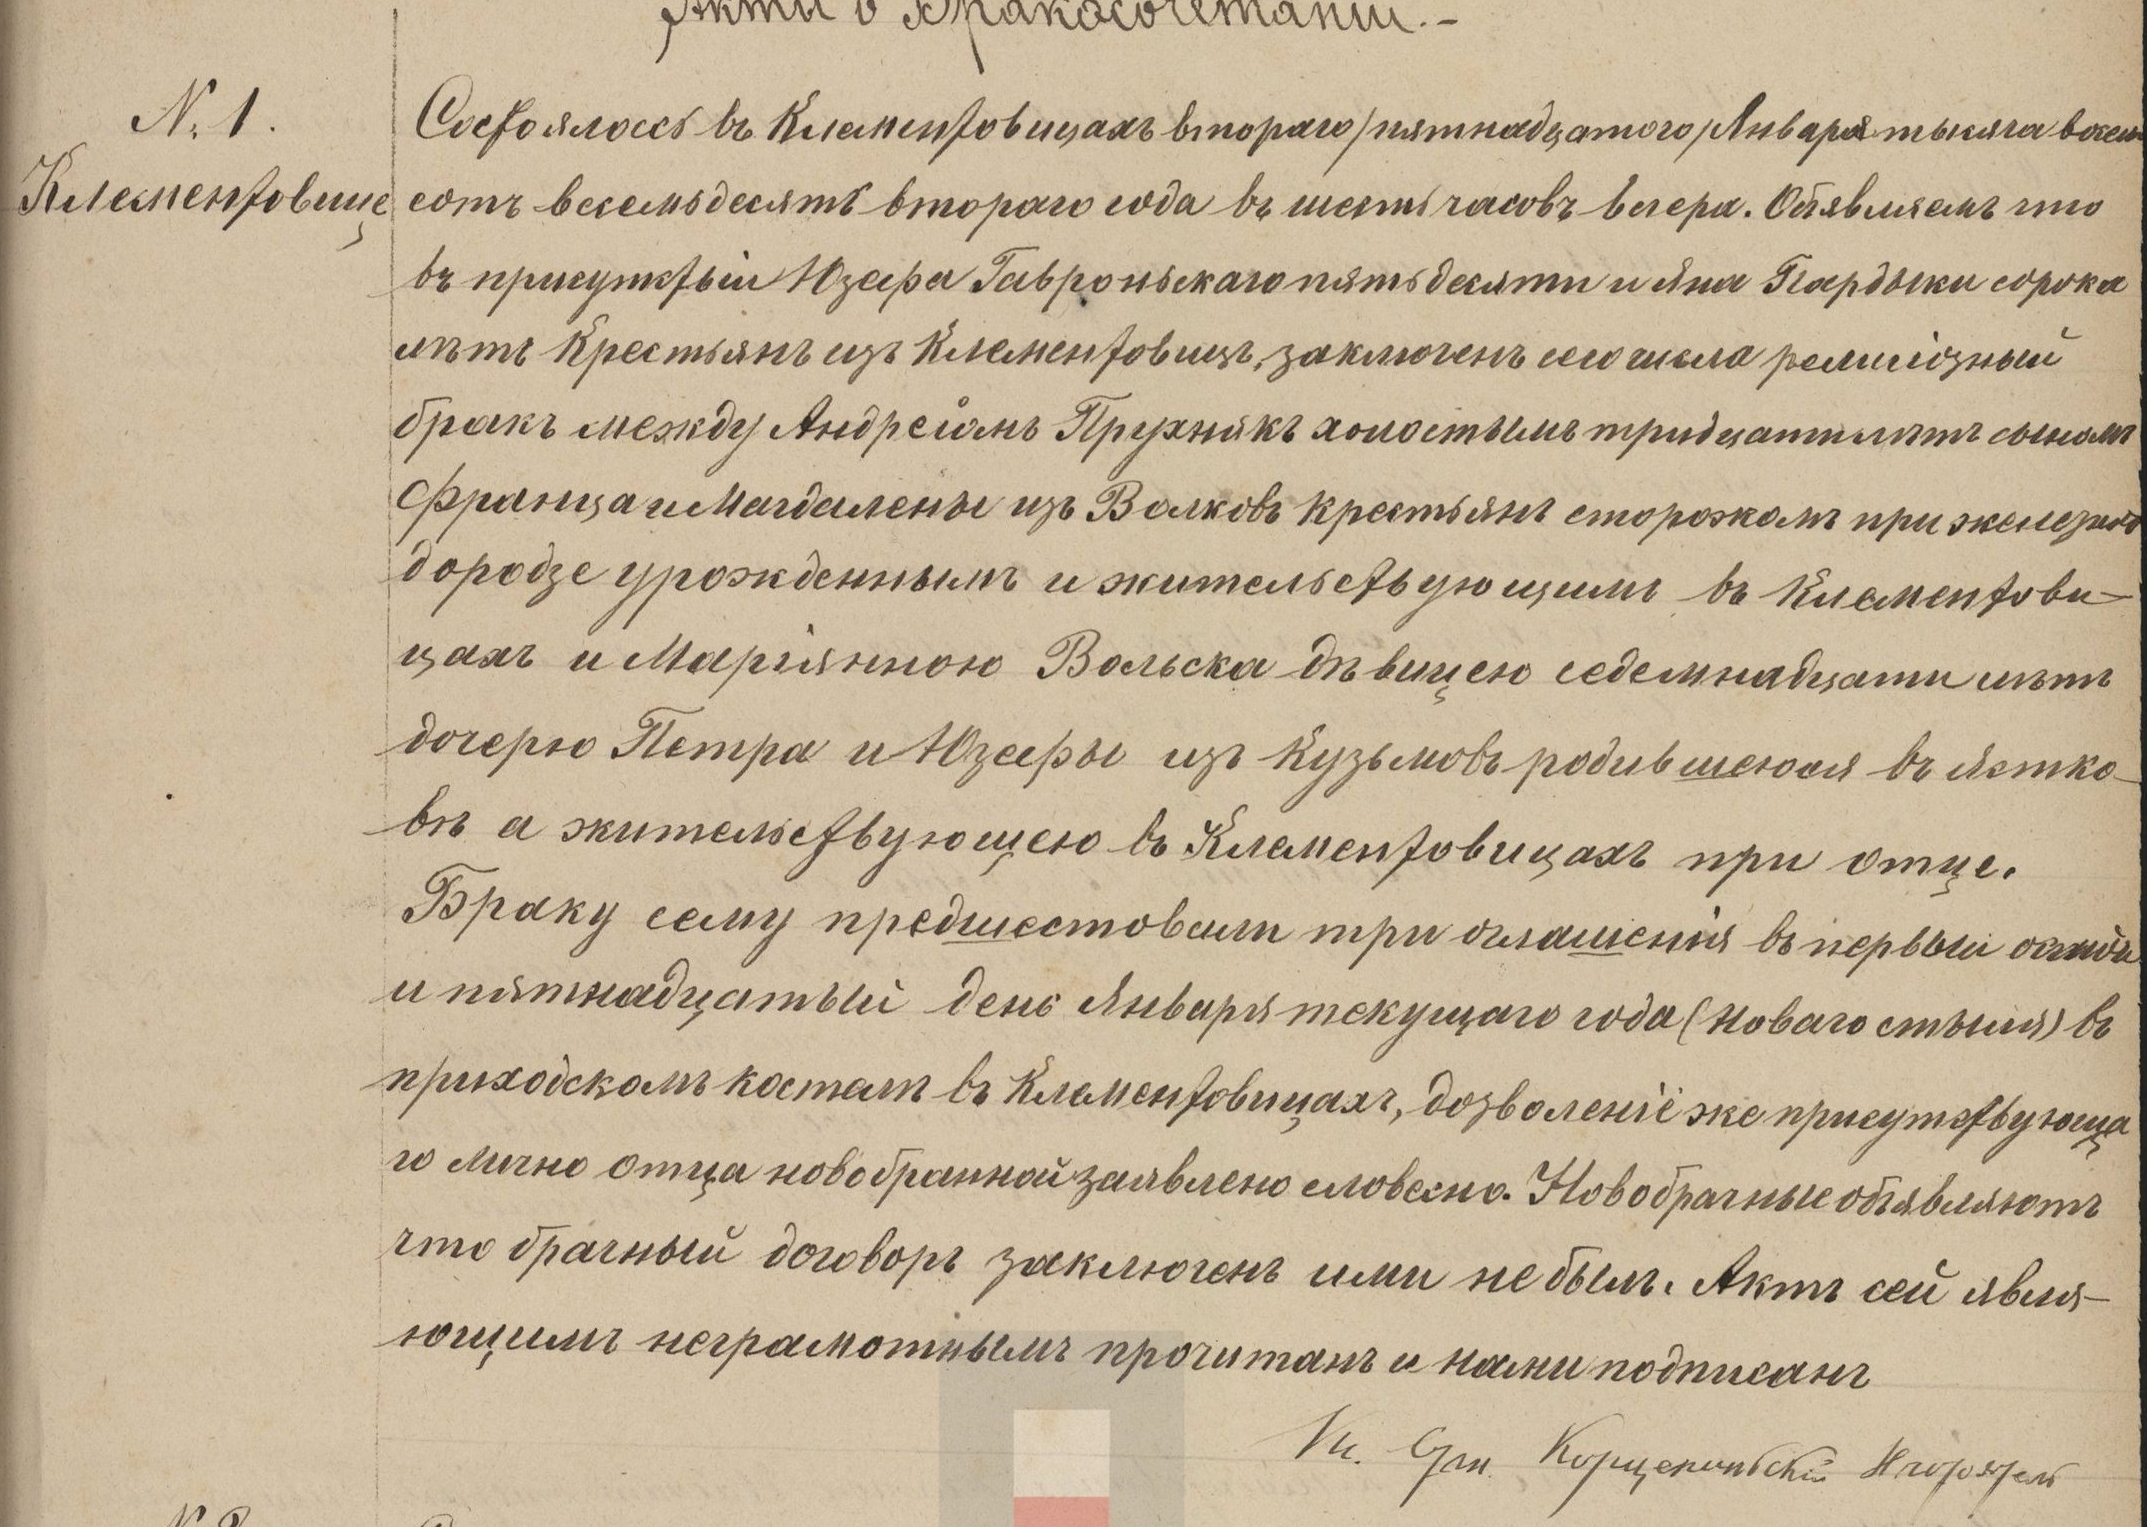 Акты о Бракосочетании.-
N. 1.
Клементовице
Состоялось въ Клементовицахъ втораго /пятнадцатого/ Января тысяча восем
сотъ восемьдесятъ втораго года въ шесть часовъ вечера. Объявляемъ что
въ присутствіи Юзефа Гавроньскаго пятьдесяти и Яна Пардыки сорока
лѣтъ Крестьянъ изъ Клементовицъ, заключенъ сего числа религіозный
бракъ между Андреіомъ Прухнякъ холостымъ тридцати лѣтъ сыномъ
Франца и Магдалены изъ Волковъ крестьянъ сторожомъ при железной
дородзе урожденнымъ и жительствующимъ въ Клементови-
цахъ и Маріянною Вольска дѣвицею седемнадцати лѣтъ
дочерю Петра и Юзефы изъ Кузьмовъ родившеюся въ Астко-
вѣ а жительствующею въ Клементовицахъ при отце.
Браку сему предшествовали три оглашенія въ первый осмый
и пятнадцатый день Января текущаго года (новаго стыля) въ
приходскомъ костелѣ въ Клементовицахъ, дозволеніе же присутствующа
го лично отца новобрачной заявлено словесно. Новобрачные объявляютъ
что брачный договоръ заключенъ ими не былъ. Актъ сей явля-
ющимъ неграмотнымъ прочитанъ и нами подписанъ
Кс.
N 2